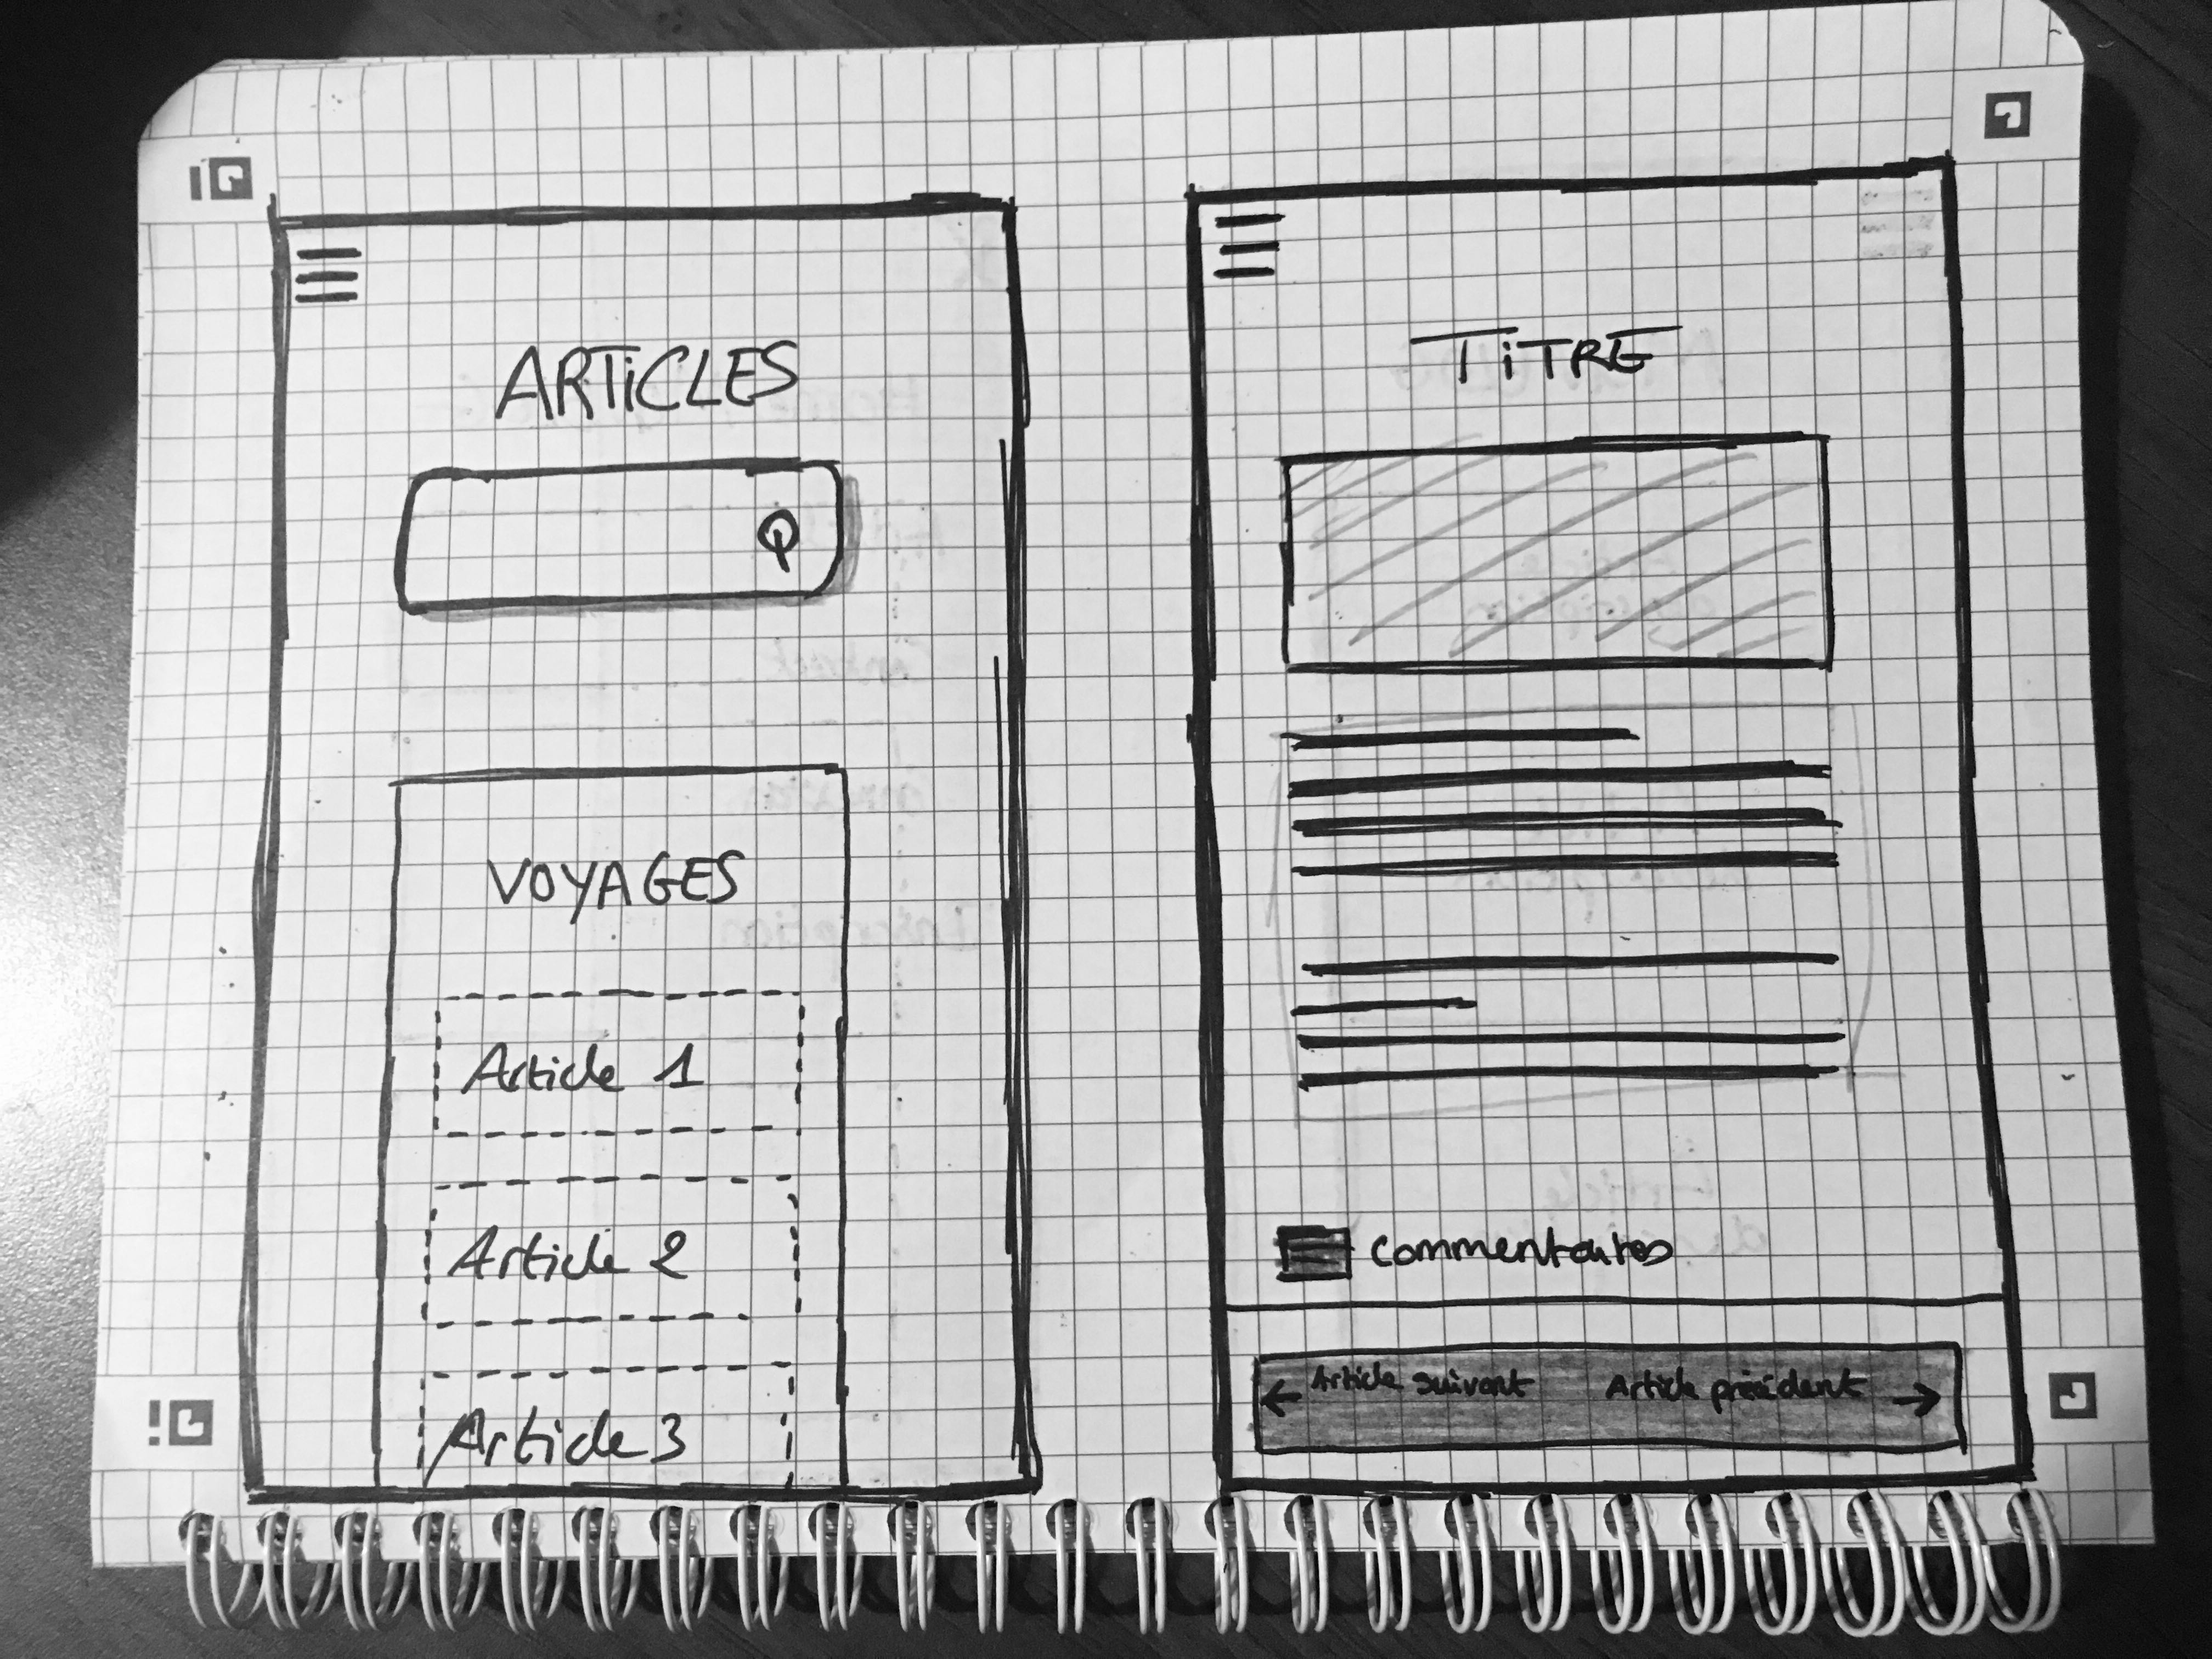 ARTiCLES
VOYAGES
Article 1
Article 2
Article 3
TiTRE
commentaires
← Article suivant Article précédent →